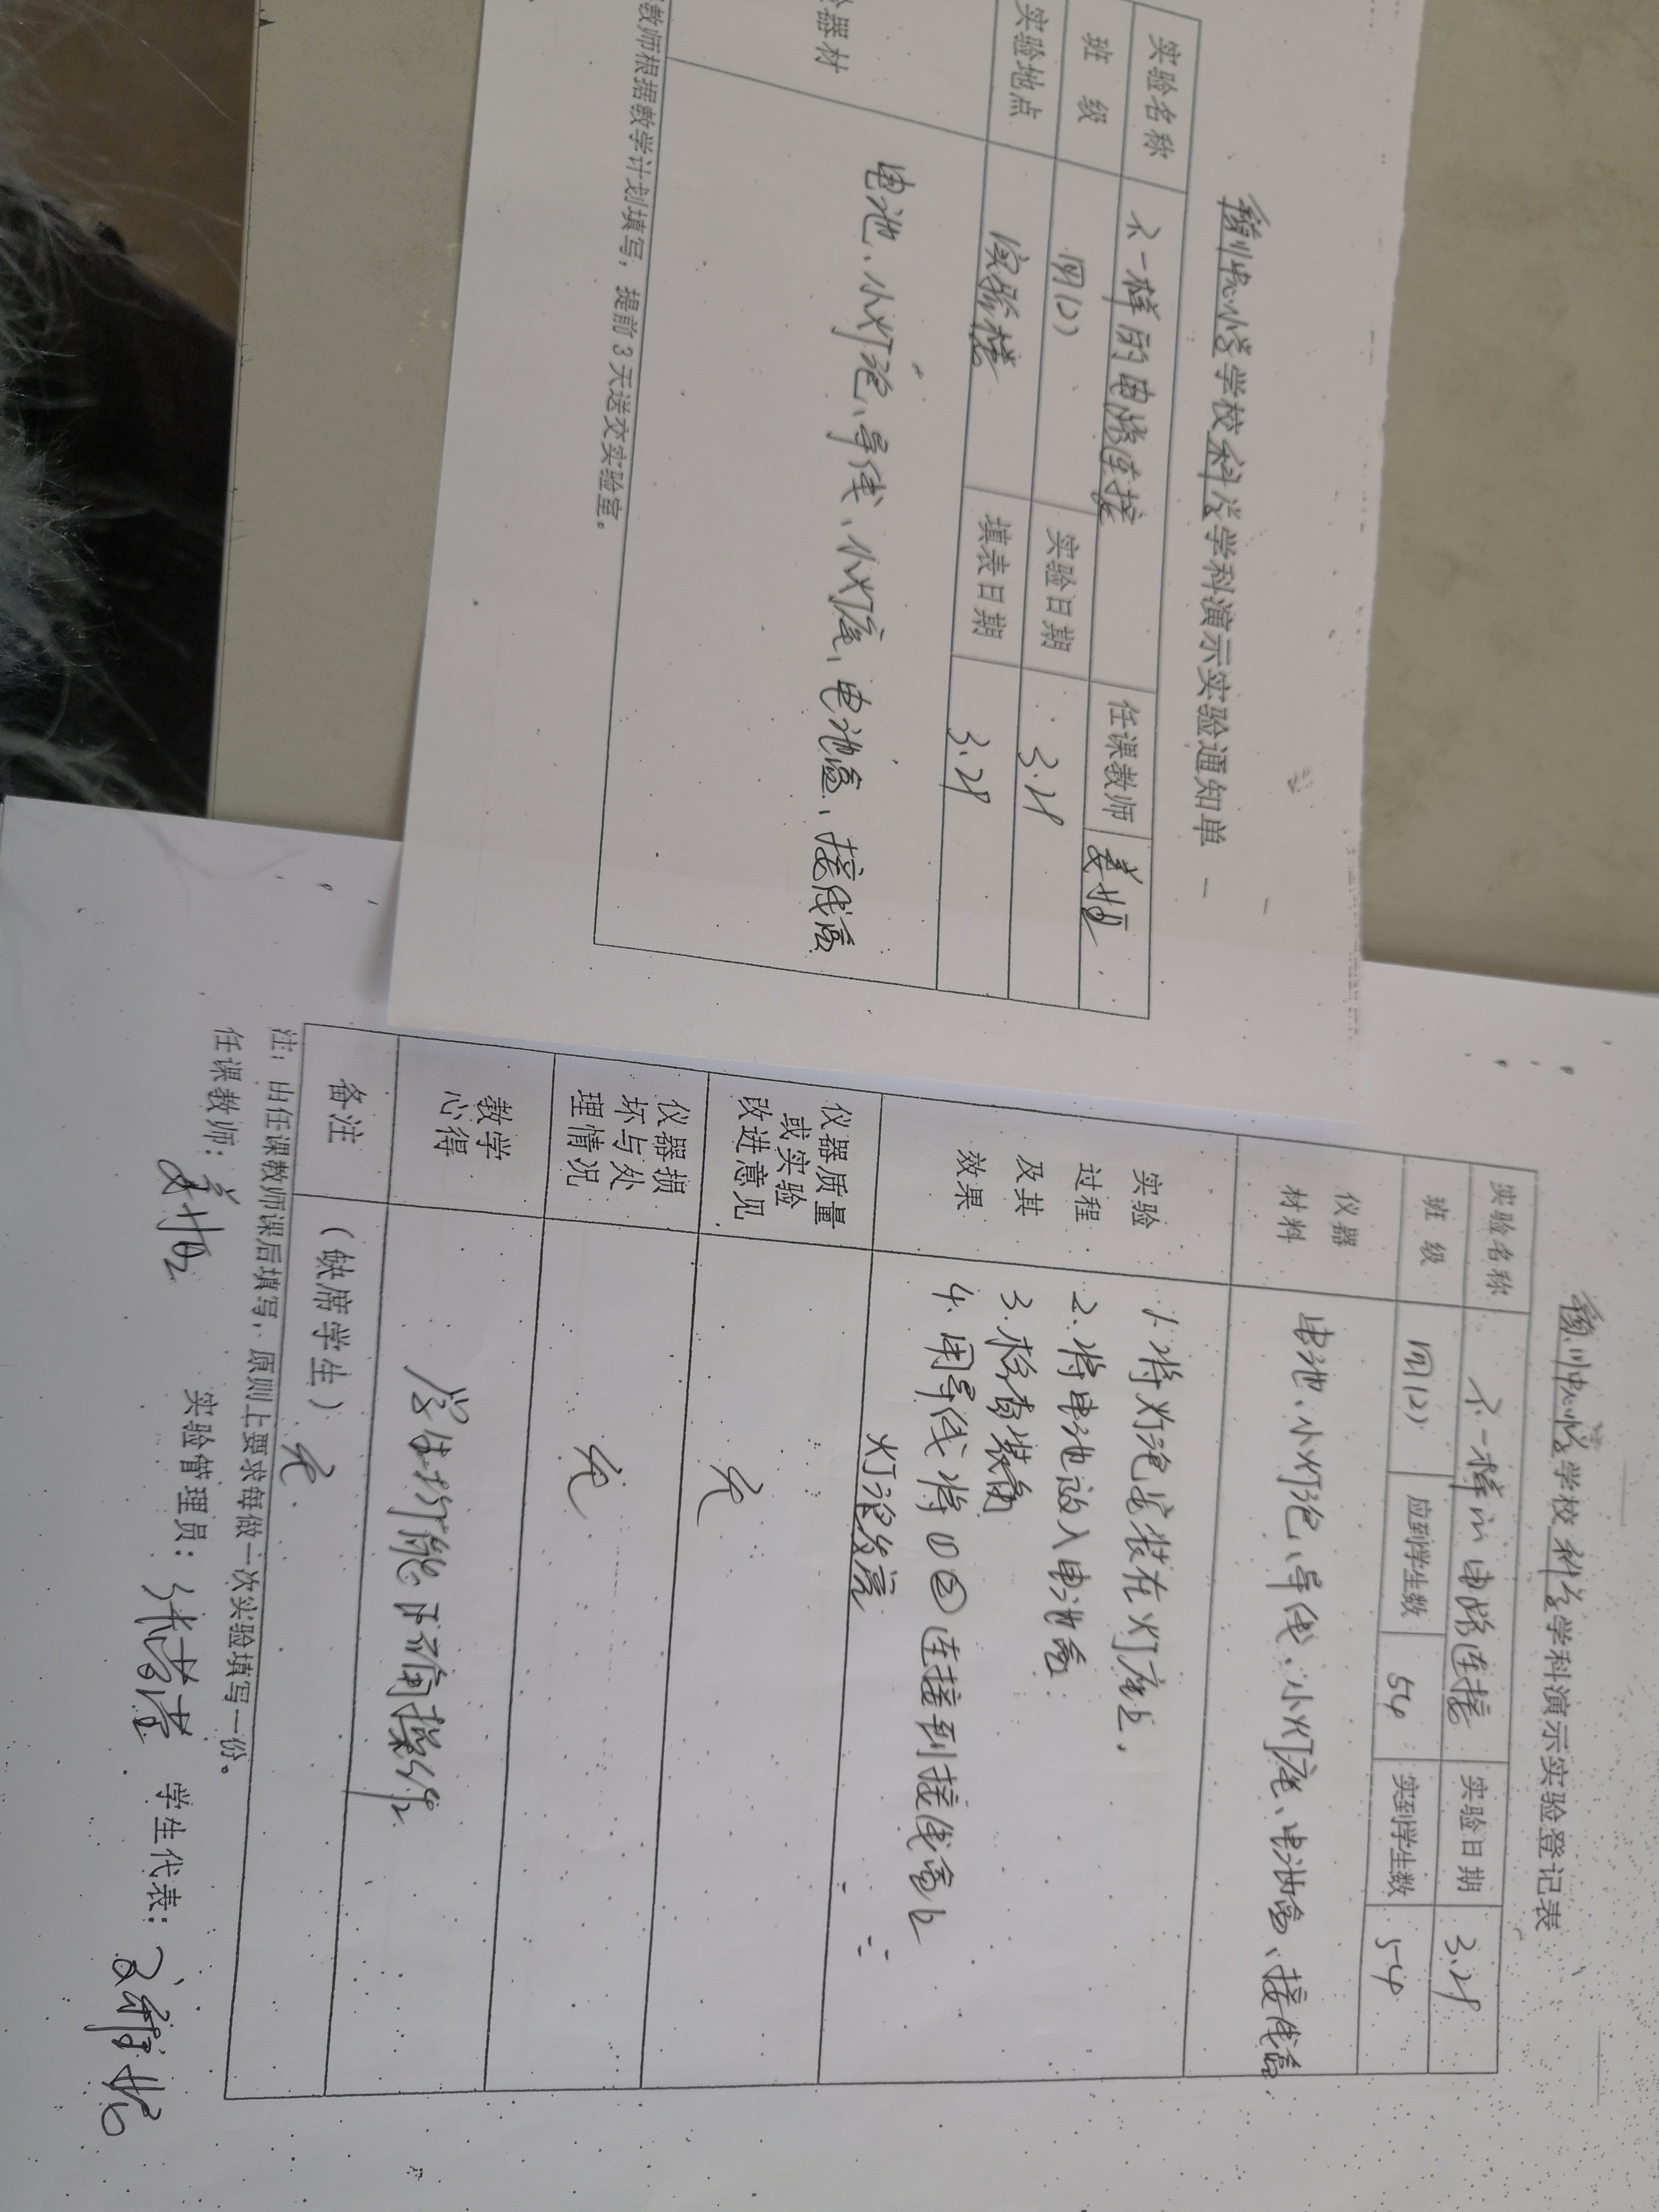 学校科学学科演示实验通知单
实验名称 不一样的电路连接 任课教师
班 级 四(2) 实验日期 3.28
实验地点 实验楼 填表日期 3.28
器材 电池、小灯泡、导线、小灯座、电池盒、接线盒
教师根据教学计划填写,提前3天送交实验室。
学校科学学科演示实验登记表
实验名称 不一样的电路连接 实验日期 3.28
班 级 四(2) 应到学生数 54 实到学生数 54
仪器材料 电池、小灯泡、导线、小灯座、电池盒、接线盒.
实验过程及其效果
1. 将灯泡安装在灯座上.
2. 将电池放入电池盒.
3. 检查装备
4. 用导线将①②连接到接线盒上
灯泡发亮
仪器质量或实验改进意见 无
仪器损坏与处理情况 无
教学心得 学生均能正确操作
备注 (缺席学生) 无.
注:由任课教师课后填写,原则上要求每做一次实验填写一份。
任课教师: 实验管理员: 学生代表: